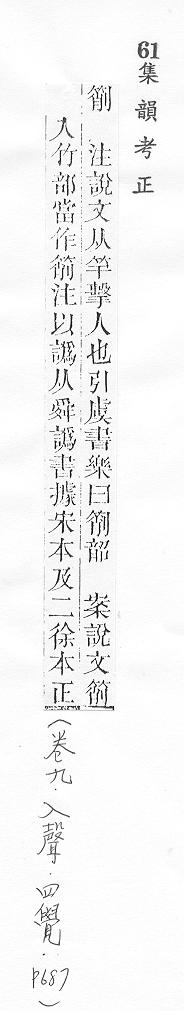 61集韻考正
箾　注說文从竿擊人也引虞書樂曰箾韶　案說文箾
入竹部當作箾注以譌从舜譌書據宋本及二徐本正
(卷九．入聲．四覺．P687)